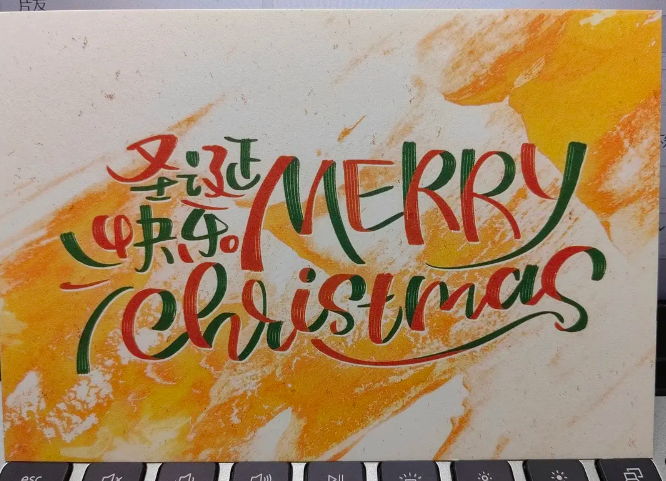 版
圣诞
快乐
MERRY
christmas
esc